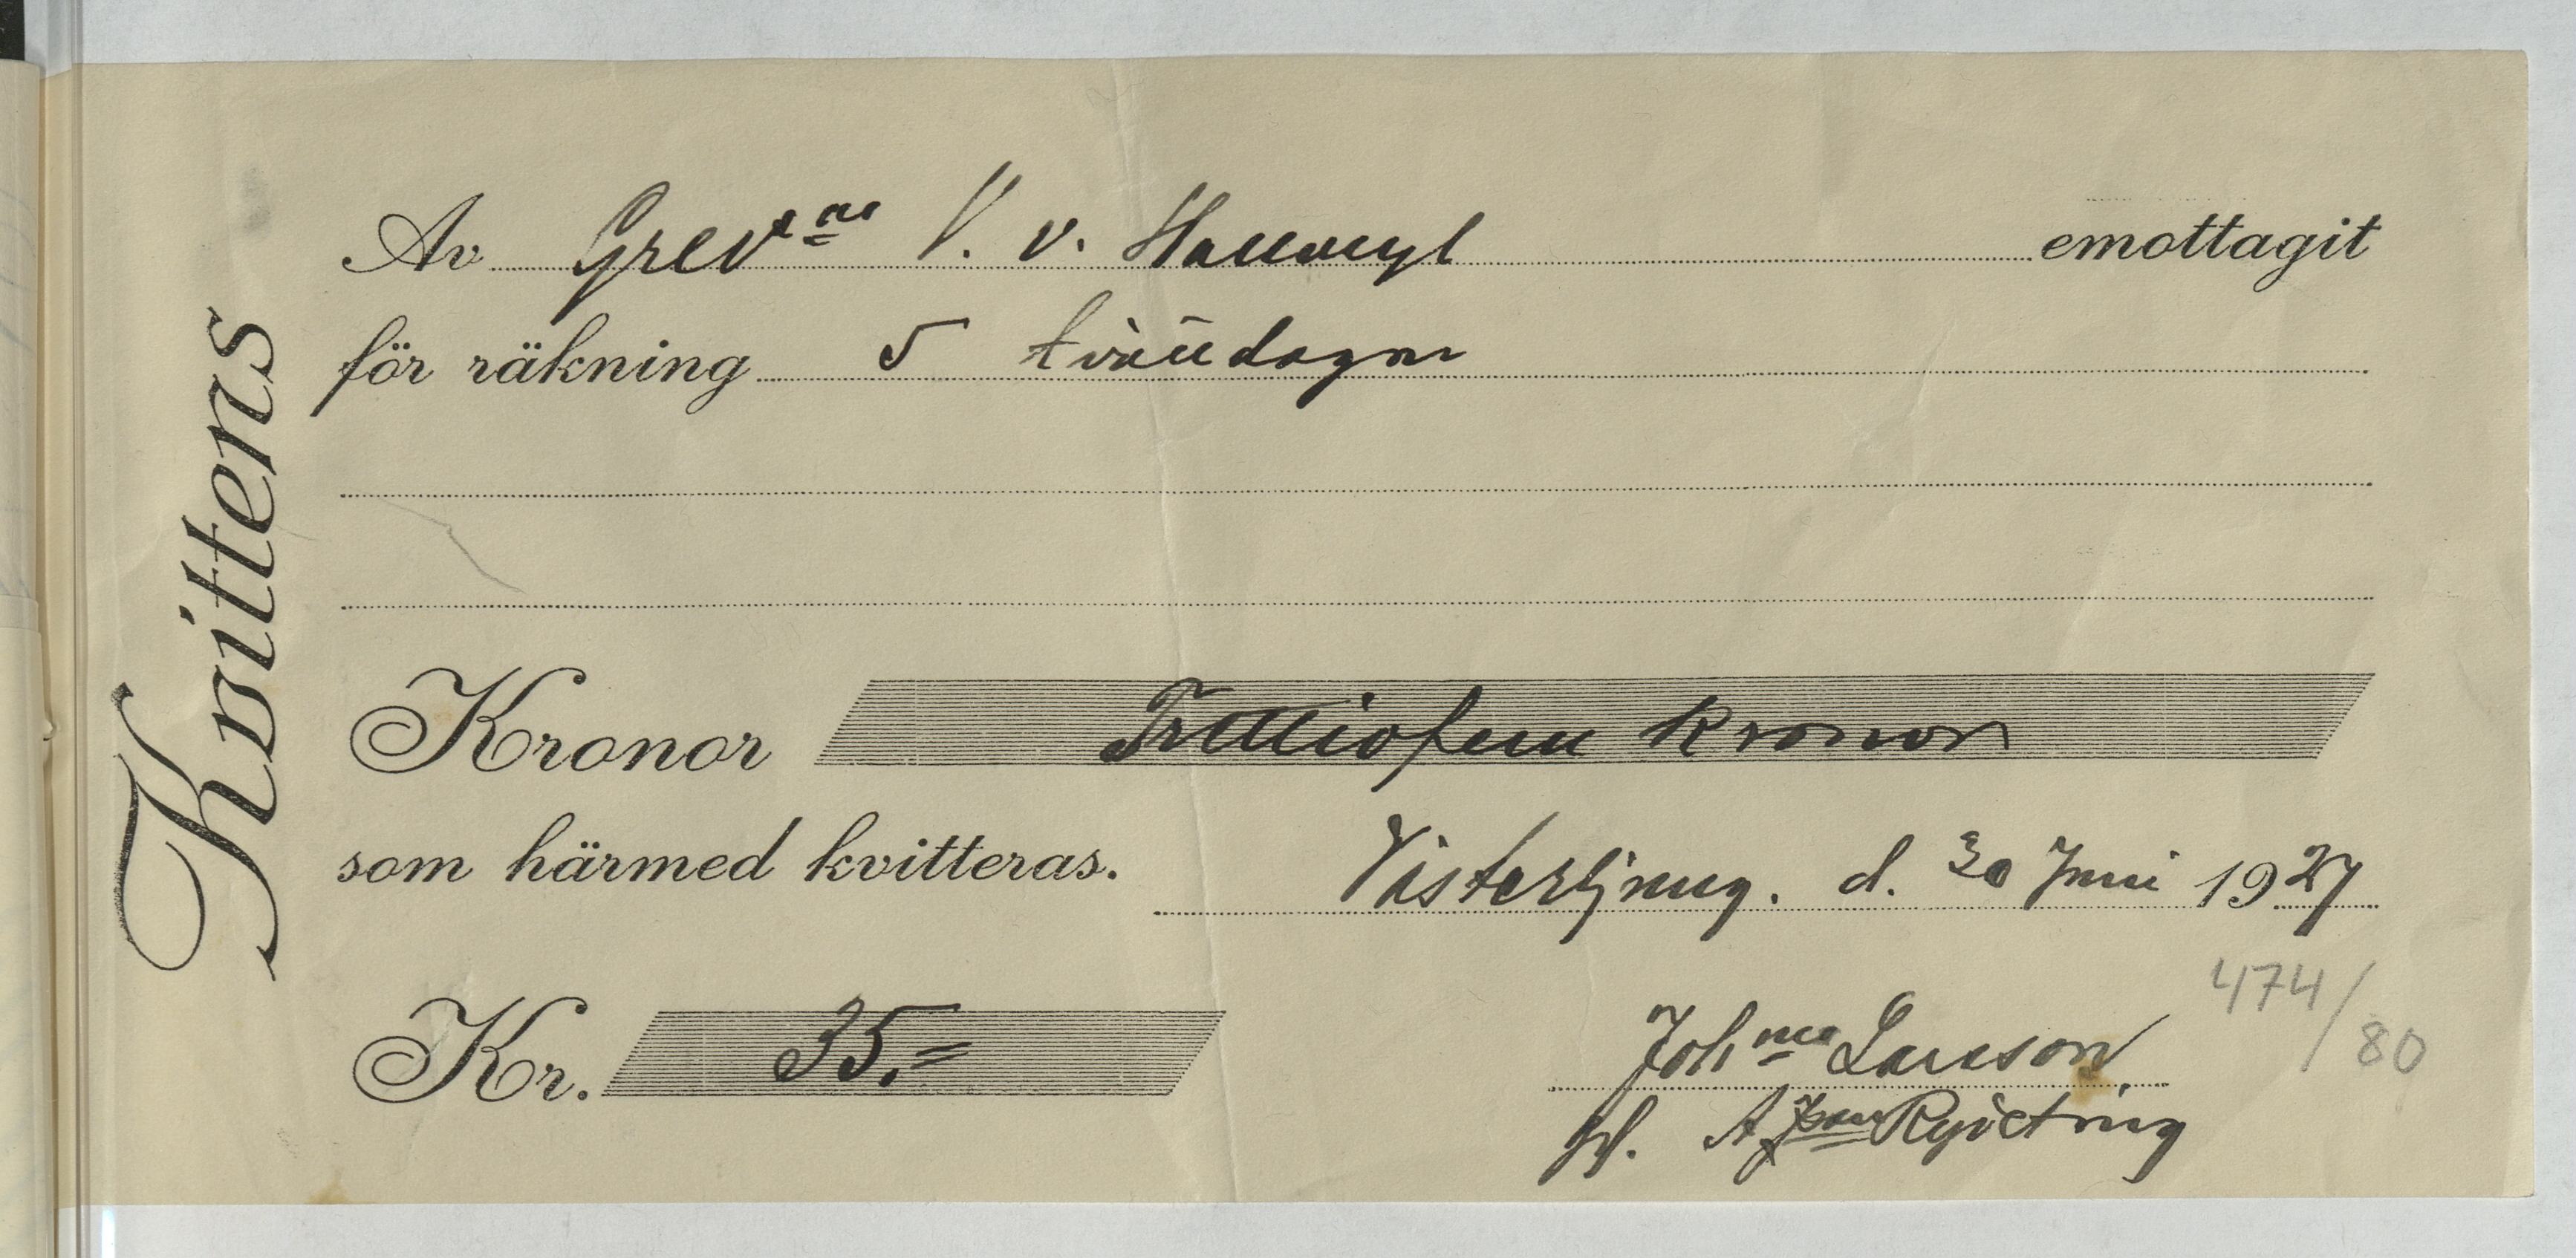 Kvittens
Av Grevna V. v. Hallwyl emottagit
för räkning 5 tvättdagar
Kronor Trettiofem kronor
som härmed kvitteras.
Västerljung. d. 30 Juni 1927
474/80
Kr. 35.=
Johna Larsson